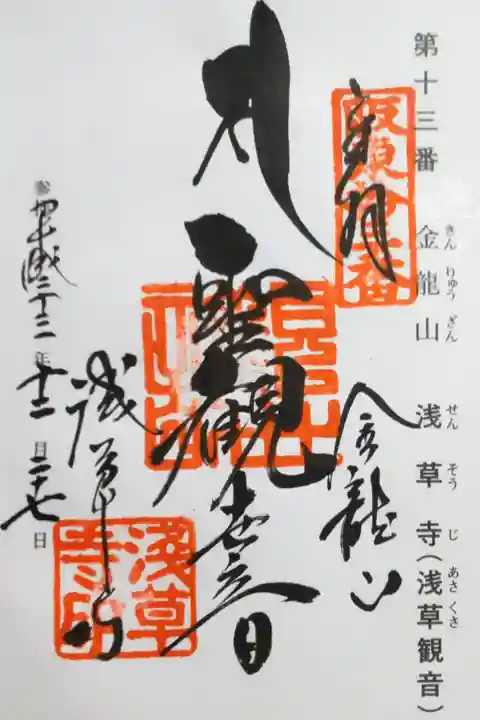 第十三番 金龍山 浅草寺(浅草観音)
きん りゅう ざん せん そう じ あさ くさ
奉拝
坂東拾三番
金龍山
聖観世音
浅草寺
浅草寺印
平成二十三年十二月二十七日